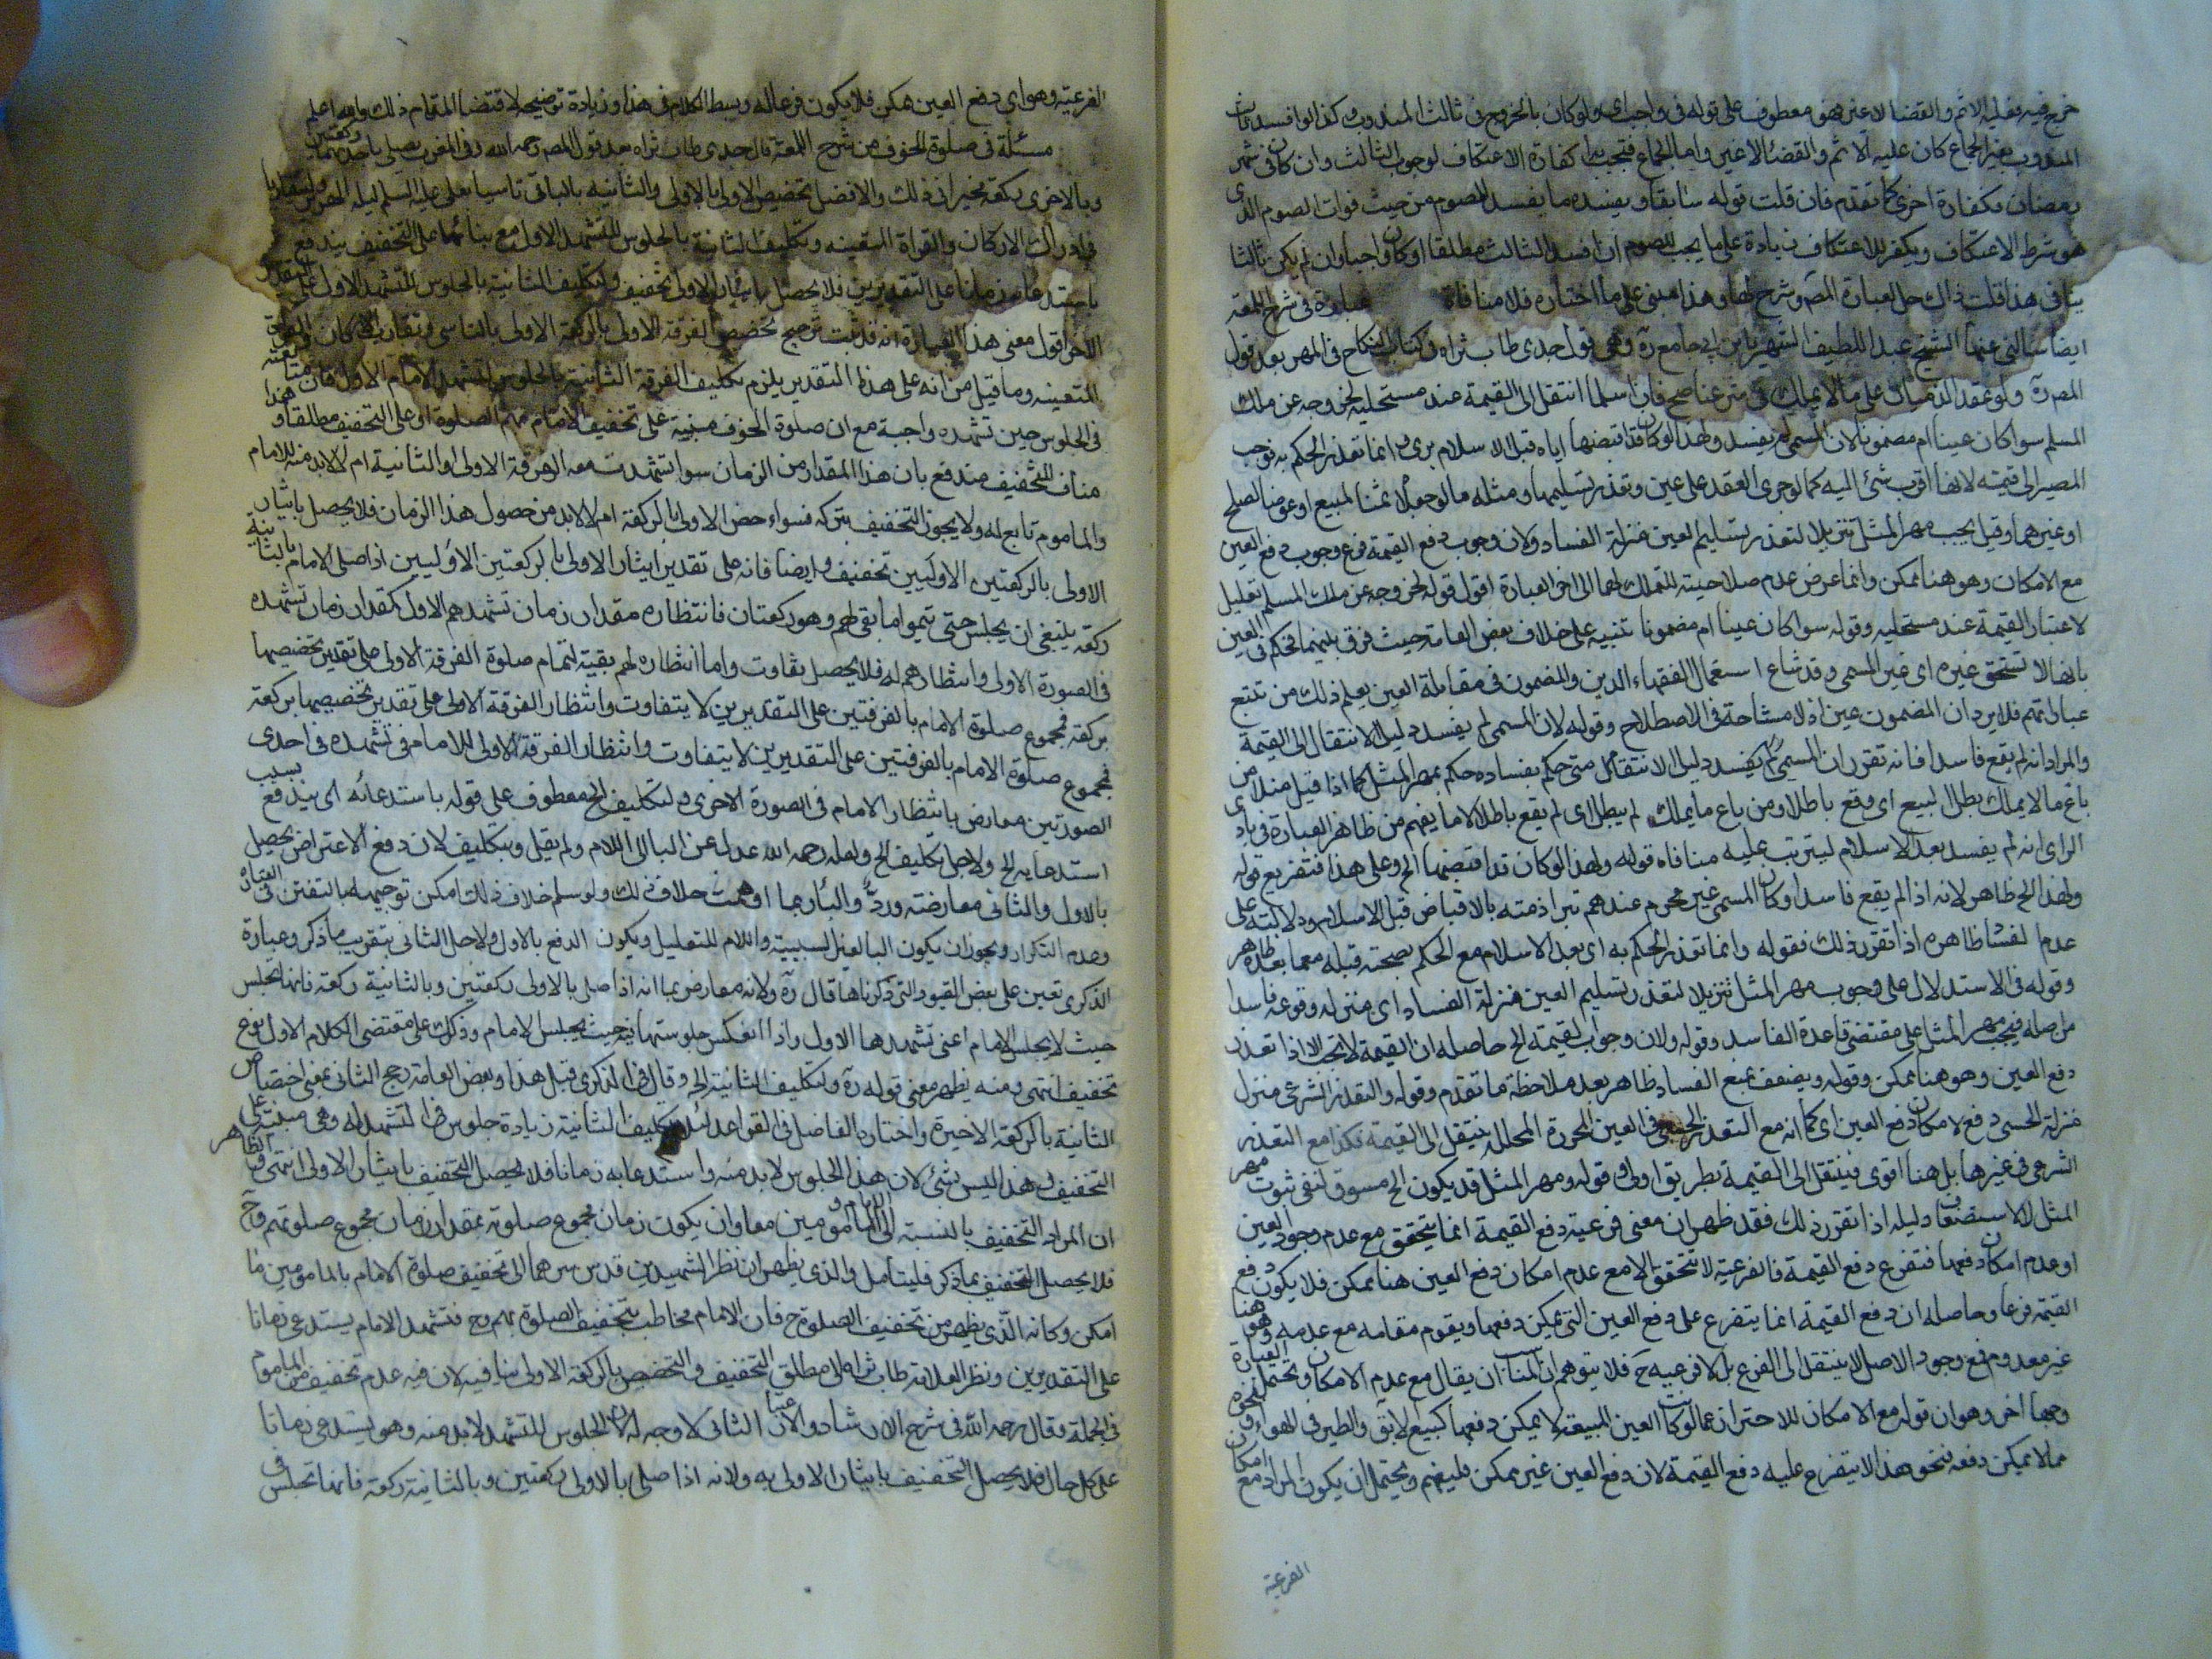 خرج فيه فعليه الاثم والقضا لا غير فهو معطوف على قوله في واجب اي ولو كان بالخروج في ثالث المندوب وكذا لو افسد ثالث
المندوب بغير الجماع كان عليه الاثم والقضا لا غير واما الجماع فتجب به كفارة الاعتكاف لوجوب الثالث وان كان في شهر
رمضان فكفارة اخرى كما تقدم فان قلت قوله سابقا ويفسده ما يفسد الصوم من حيث فوات الصوم الذي
هو شرط الاعتكاف ويكفر للاعتكاف زيادة على ما يجب للصوم ان افسد الثالث مطلقا او كان واجبا وان لم يكن ثالثا
ينافي هذا قلت ذاك حل لعبارة المص وشرح لها وهذا مبنى على ما اختاره فلا منافاة عبارة في شرح اللمعة
ايضا سالني عنها الشيخ عبد اللطيف الشهير بابن ابي جامع ره وهي قول جدى طاب ثراه في كتاب النكاح في المهر بعد قول
المص ره ولو عقد الذميان على ما لا يملك في شرعنا صح فان اسلما انتقل الى القيمة عند مستحليه لخروجه عن ملك
المسلم سوا كان عينا ام مضمونا لان المسمى لم يفسد ولهذا لو كان قد اقبضها اياه قبل الاسلام برئ وانما تعذر الحكم به فوجب
المصير الى قيمته لانها اقرب شئ اليه كما لو جرى العقد على عين وتعذر تسليمها ومثله ما لو جعلا ثمنا لمبيع او عوضا لصلح
او غيرهما وقيل يجب مهر المثل تنزيلا لتعذر تسليم العين منزلة الفساد ولان وجوب دفع القيمة فرع وجوب دفع العين
مع الامكان وهو هنا ممكن وانما عرض عدم صلاحيته للتملك لهما الى اخر العبارة اقول قوله لخروجه عن ملك المسلم تعليل
لاعتبار القيمة عند مستحليه وقوله سوا كان عينا ام مضمونا تنبيه على خلاف بعض العامة حيث فرق بينهما فحكم في العين
بانها لا تستحق غيره اى غير المسمى وقد شاع استعمال الفقهاء الدين والمضمون في مقابلة العين يعلم ذلك من تتبع
عباراتهم فلا يرد ان المضمون عين اذ لا مشاحة في الاصطلاح وقوله لان المسمى لم يفسد دليل الانتقال الى القيمة
والمراد انه لم يقع فاسدا فانه تقرر ان المسمى لم يفسد دليل الانتقال متى حكم بفساده حكم بمهر المثل كما اذا قيل مثلا من
باع ما لا يملك بطل البيع اى وقع باطلا ومن باع ما يملك لم يبطل اى لم يقع باطلا لا ما يفهم من ظاهر العبارة في بادي
الراى انه لم يفسد بعد الاسلام ليترتب عليه منافاه قوله ولهذا لو كان قد اقبضها الخ وعلى هذا فتفريع قوله
ولهذا الخ ظاهر لانه اذا لم يقع فاسدا وكان المسمى غير محرم عندهم تبرا ذمته بالاقباض قبل الاسلام ودلالته على
عدم الفساد ظاهره اذا تقرر ذلك فقوله وانما تعذر الحكم به اى بعد الاسلام مع الحكم بصحته قبله معها بعده ظاهر
وقوله في الاستدلال على وجوب مهر المثل تنزيلا لتعذر تسليم العين منزلة الفساد اى منزله وقوعه فاسدا
من اصله فيجب مهر المثل على مقتضى قاعدة الفاسد وقوله ولان وجوب القيمة الخ حاصله ان القيمة لا تجب الا اذا تعذر
دفع العين وهو هنا ممكن وقوله ويضعف بمنع الفساد ظاهر بعد ملاحظة ما تقدم وقوله والتعذر الشرعى منزل
منزلة الحسى دفع لامكان دفع العين اى كما انه مع التعذر الحسى في العين المحررة المحللة ينتقل الى القيمة فكذا مع التعذر
الشرعى في غيرها بل هنا اقوى فينتقل الى القيمة بطريق اولى وقوله ومهر المثل قد يكون الخ مسوق لنفى ثبوت مهر
المثل لا لاستضعاف دليله اذا تقرر ذلك فقد ظهر ان معنى فرعية دفع القيمة انما يتحقق مع عدم وجود العين
او عدم امكان دفعها فتفرع دفع القيمة فالفرعية لا تتحقق الا مع عدم امكان دفع العين هنا ممكن فلا يكون دفع
القيمة فرعا وحاصله ان دفع القيمة انما يتفرع على دفع العين التي يمكن دفعها ويقوم مقامه مع عدمه وهو هنا
غير معدوم فمع وجود الاصل لا ينتقل الى الفرع بل لا فرعيه ح فلا يتوهم ان المناسب ان يقال مع عدم الامكان وتحتمل العبارة
وجها اخر وهو ان قوله مع الامكان للاحتراز عما لو كانت العين المبيعة لا يمكن دفعها كبيع الابق والطير في الهواء ونحوه
مما لا يمكن دفعه فنحو هذا لا يتفرع عليه دفع القيمة لان دفع العين غير ممكن فليفهم ويحتمل ان يكون المراد مع امكان
الفرعية
الفرعية وهو اى دفع العين ممكن فلا يكون فرعا له وبسط الكلام في هذا وزيادة توضيحه لاقتضا المقام ذلك والله اعلم
مسئلة في صلوة الخوف من شرح اللمعة قال جدى طاب ثراه بعد قول المص رحمه الله وفي المغرب يصلى باحديهما ركعتين
وبالاخرى ركعة مخيرا في ذلك والافضل تخصيص الاولى بالاولى والثانية بالباقى تاسيا بعلى عليه السلم ليلة الهرير وليتقاربا
في ادراك الاركان والقراءة المتعينه وتكليف الثانية بالجلوس للتشهد الاول مع بنائها على التخفيف يندفع
باستدعائه زمانا على التقديرين فلا يحصل بايثار الاولى تخفيف ولتكليف الثانية بالجلوس للتشهد الاول على التقدير
الاخر اقول معنى هذا العبارة انه قد ثبت ترجيح تخصيص الفرقة الاولى بالركعة الاولى بالتاسى وتقارب الاركان والقراءة
المتعينه وما قيل من انه على هذا التقدير يلزم تكليف الفرقة الثانية بالجلوس لتشهد الامام الاول فان متابعته
في الجلوس حين تشهده واجبة مع ان صلوة الخوف مبنية على تخفيف الامام بهم الصلوة او على التخفيف مطلقا وهذا
مناف للتخفيف مندفع بان هذا المقدار من الزمان سوا تشهدت معه الفرقة الاولى او الثانية ام لا لابد منه للامام
والماموم تابع له ولا يجوز التخفيف بتركه فسواء خص الاولى بالركعة ام لا لابد من حصول هذا الزمان فلا يحصل بايثار
الاولى بالركعتين الاوليين تخفيف وايضا فانه على تقدير ايثار الاولى بالركعتين الاوليين اذا صلى الامام بالثانية
ركعة ينبغى ان يجلس حتى يتموا ما بقى لهم وهو ركعتان فانتظاره مقدار زمان تشهدهم الاول كمقدار زمان تشهده
في الصورة الاولى وانتظارهم له فلا يحصل تفاوت واما انتظاره لهم بقية اتمام صلوة الفرقة الاولى على تقدير تخصيصها
بركعة فمجموع صلوة الامام بالفرقتين على التقديرين لا يتفاوت وانتظار الفرقة الاولى على تقدير تخصيصها بركعة
فمجموع صلوة الامام بالفرقتين على التقديرين لا يتفاوت وانتظار الفرقة الاولى للامام في تشهده في احدى
الصورتين معارض بانتظار الامام في الصورة الاخرى ولتكليف الخ معطوف على قوله باستدعائه اى يندفع بسبب
استدعايه الخ ولاجل تكليف الخ ولعله رحمه الله عدل عن الباء الى اللام ولم يقل وبتكليف لان دفع الاعتراض يحصل
بالاول والثانى معارضته ورد والباء ربما اوهمت خلاف ذلك ولو سلم خلاف ذلك امكن توجيهه بالتفنن في العبارة
وعدم التكرار ويجوز ان يكون الباء لغير السببية واللام للتعليل ويكون الدفع بالاول ولاجل الثانى بتقريب ما ذكر وعبارة
الذكرى تعين على بعض القيود التي ذكرناها قال ره ولانه معارض بما انه اذا صلى بالاولى ركعتين وبالثانية ركعة فانها تجلس
حيث لا يجلس الامام اعنى تشهدها الاول واذا انعكس جلوستها فيه حيث يجلس الامام وذلك على مقتضى الكلام الاول نوع
تخفيف انتهى ومنه يظهر معنى قوله ره ولتكليف الثانية الخ وقال في الذكرى قبل هذا وبعض العامة رجح الثانى بمعنى اختصاص
الثانية بالركعة الاخيرة واختاره الفاضل في القواعد لئلا تكليف الثانية زيادة جلوس في التشهد له وهى مبنية على
التخفيف وهذا ليس بشئ لان هذا الجلوس لابد منه واستدعا به زمانا فلا يحصل التخفيف بايثار الاولى انتهى والظاهر
ان المراد التخفيف بالنسبة الى الامام والمامومين معا وان يكون زمان مجموع صلوته بمقدار زمان مجموع صلوتهم وح
فلا يحصل التخفيف بما ذكر فليتامل والذى يظهر ان نظر الشهيدين قدس سرهما الى تخفيف صلوة الامام بالمامومين ما
امكن وكانه الذى يظهر من تخفيف الصلوة ح فان الامام مخاطب بتخفيف الصلوة بهم وح فتشهد الامام يستدعى زمانا
على التقديرين ونظر العلامة طاب ثراه الى مطلق التخفيف والتخصيص بالركعة الاولى ينافيه لان فيه عدم تخفيف من الماموم
في الجملة وقال رحمه الله في شرح الارشاد والثانى لا وجه له لان الجلوس للتشهد لابد منه وهو يستدعى زمانا
على كل حال فلا يحصل التخفيف بايثار الاولى به ولانه اذا صلى بالاولى ركعتين وبالثانية ركعة فانها تجلس